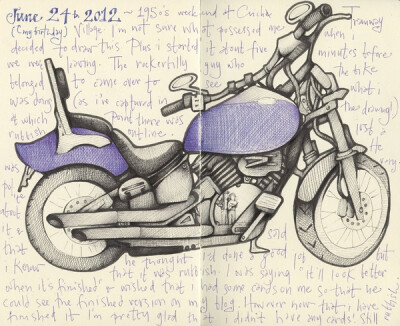 June, 24th 2012 ~ 1950s weekend at Crich Tramway
(my birthday) Village. I'm not sure what possessed me when I
decided to draw this. Plus i started it about five minutes before
we were leaving. The rockerbilly guy who the bike
belonged to came over to see what i
was doing (as i've captured in the drawing)
of which point there was just a
rubbish outline. He
was very
about
it
that he thought I'd done a good job but
i know that it was rubbish. I was saying "it'll look better
when it's finished" & wished that i had some cards on me so that he
could see the finished version on my blog. However now that i have
finished it I'm pretty glad that i didn't have my cards! Still
rubbish.